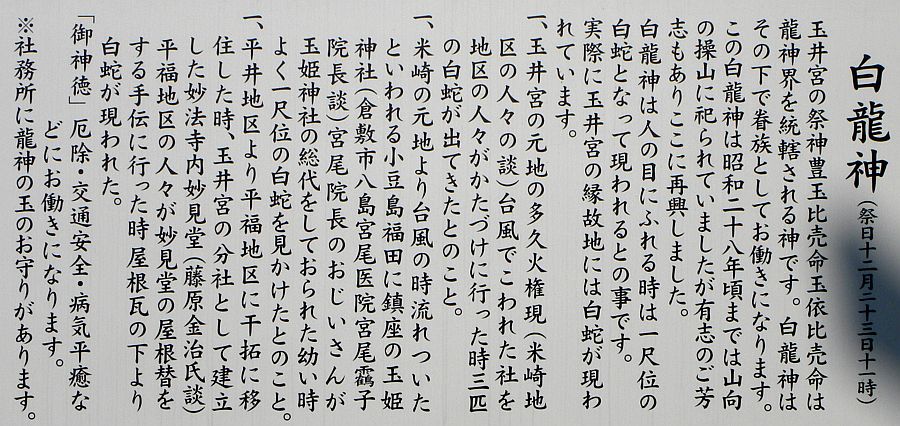 白龍神（祭日十二月二十三日十一時）
玉井宮の祭神豊玉比売命玉依比売命は
龍神界を統轄される神です。白龍神は
その下で眷族としてお働きになります。
この白龍神は昭和二十八年頃までは山向
の操山に祀られていましたが有志のご芳
志もありここに再興しました。
白龍神は人の目にふれる時は一尺位の
白蛇となって現われるとの事です。
実際に玉井宮の縁故地には白蛇が現わ
れています。
一、玉井宮の元地の多久火権現（米崎地
区の人々の談）台風でこわれた社を
地区の人々がかたづけに行った時三匹
の白蛇が出てきたとのこと。
一、米崎の元地より台風の時流れついた
といわれる小豆島福田に鎮座の玉姫
神社（倉敷市八島宮尾医院宮尾靍子
院長談）宮尾院長のおじいさんが
玉姫神社の総代をしておられた幼い時
よく一尺位の白蛇を見かけたとのこと。
一、平井地区より平福地区に干拓に移
住した時、玉井宮の分社として建立
した妙法寺内妙見堂（藤原金治氏談）
平福地区の人々が妙見堂の屋根替を
する手伝に行った時屋根瓦の下より
白蛇が現われた。
「御神徳」厄除・交通安全・病気平癒な
どにお働きになります。
※社務所に龍神の玉のお守りがあります。